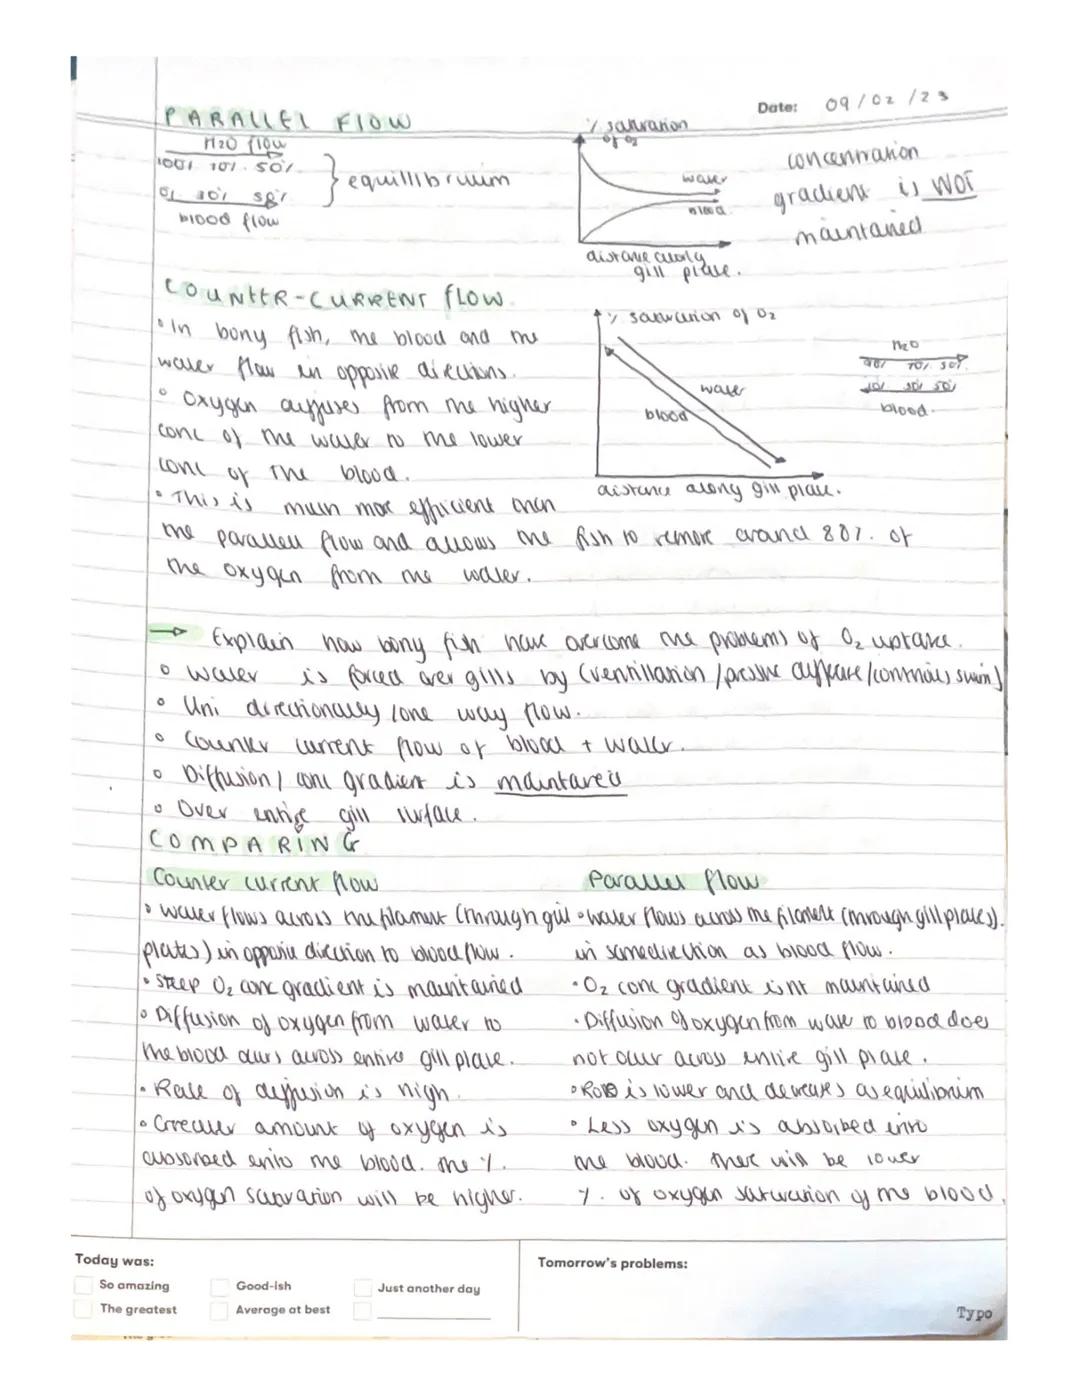 Date: 09/02/23
PARALLEL FLOW
H2O flow
100% 70% 50%
0% 30% 50%
blood flow
equillibruim
% saturation
of O2
water
blood
distance along
gill plate.
concentration
gradient is NOT
maintained
COUNTER-CURRENT FLOW
• In bony fish, the blood and the
water flow in opposite directions.
• Oxygen diffuses from the higher
conc of the water to the lower
conc of the blood.
• This is much more efficient than
the parallell flow and allows the fish to remove around 80% of
the oxygen from the water.
% saturation of O2
water
blood
distance along gill plate.
H2O
90% 70% 50%
50%
blood.
→ Explain how bony fish have overcome the problems of O2 uptake.
• Water is forced over gills by (ventillation/pressure difference/ swim)
• Uni directionally/one way flow.
• Counter current flow of blood + water.
• Diffusion/conc gradient is maintained
• Over entire gill surface.
COMPARING
Counter current flow
• Water flows across the filament (through gill
plates) in opposite direction to blood flow.
• Steep O2 conc gradient is maintained
• Diffusion of oxygen from water to
the blood occurs across entire gill plate.
• Rate of diffusion is high.
• Greater amount of oxygen is
absorbed into the blood. The %
of oxygen saturation will be higher.
Parallel flow
• water flows across the filament (through gill plates).
in same direction as blood flow.
• O2 conc gradient isnt maintained
• Diffusion of oxygen from water to blood does
not occur across entire gill plate.
• ROD is lower and decreases as equilibrium
• Less oxygen is absorbed into
the blood. there will be lower
% of oxygen saturation of the blood.
Today was:
So amazing
Good-ish
Just another day
The greatest
Average at best
Tomorrow's problems:
Typo